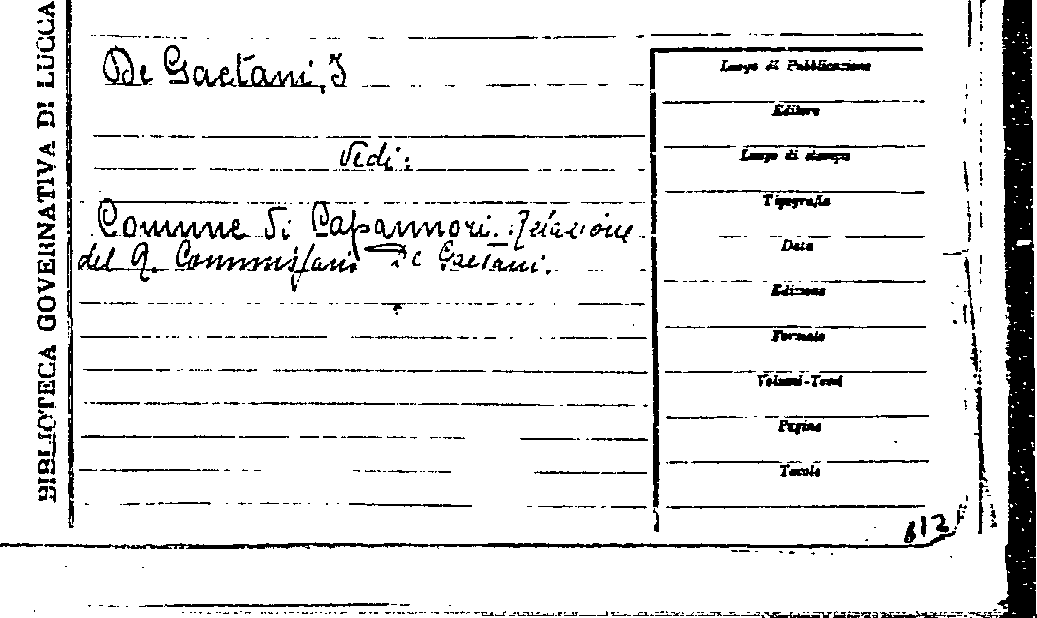 BIBLIOTECA GOVERNATIVA DI LUCCA
De Gaetani, I
Vedi:
Comune di Capannori. Relazione
del R. Commissari De Gaetani.
Luogo di Pubblicazione
Editore
Luogo di stampa
Tipografia
Data
Edizione
Formato
Volumi-Tomi
Pagine
Tavole
612